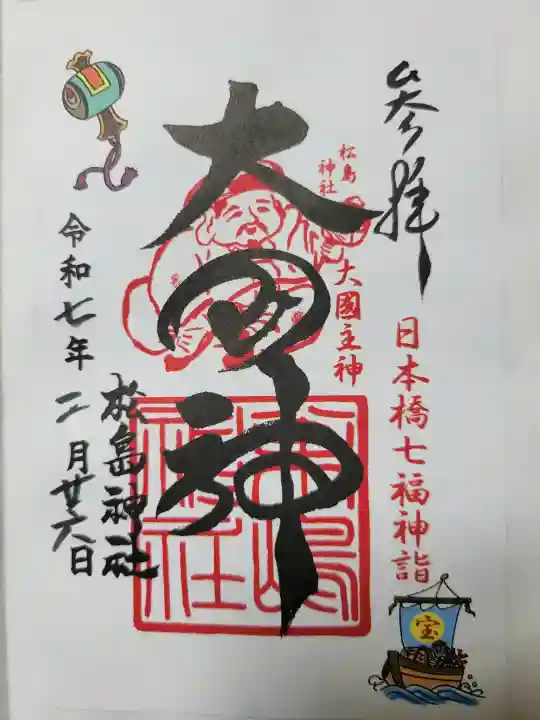 参拝
日本橋七福神詣
宝
松島
神社
大國主神
大国神
松島神社
松島神社
令和七年二月廿六日